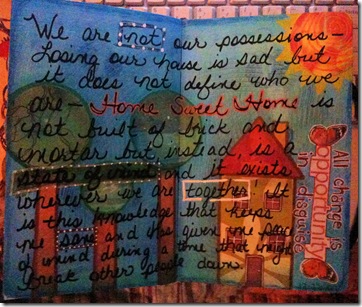 We are not our possessions-
Losing our house is sad but
it does not define who we
are- Home Sweet Home is
not built of brick and
mortar but, instead, is a
state of mind and it exists
wherever we are together! It
is this knowledge that keeps
me sane and has given me peace
of mind during a time that might
break other people down.
All change is
opportunity
in disguise